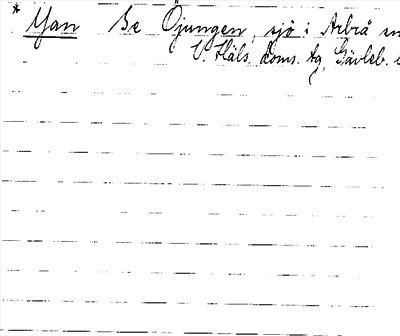 * Yan Se Öjungen, sjö i Arbrå sn
V. Häls. doms. tg, Gävleb. l